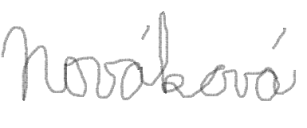 Nováková